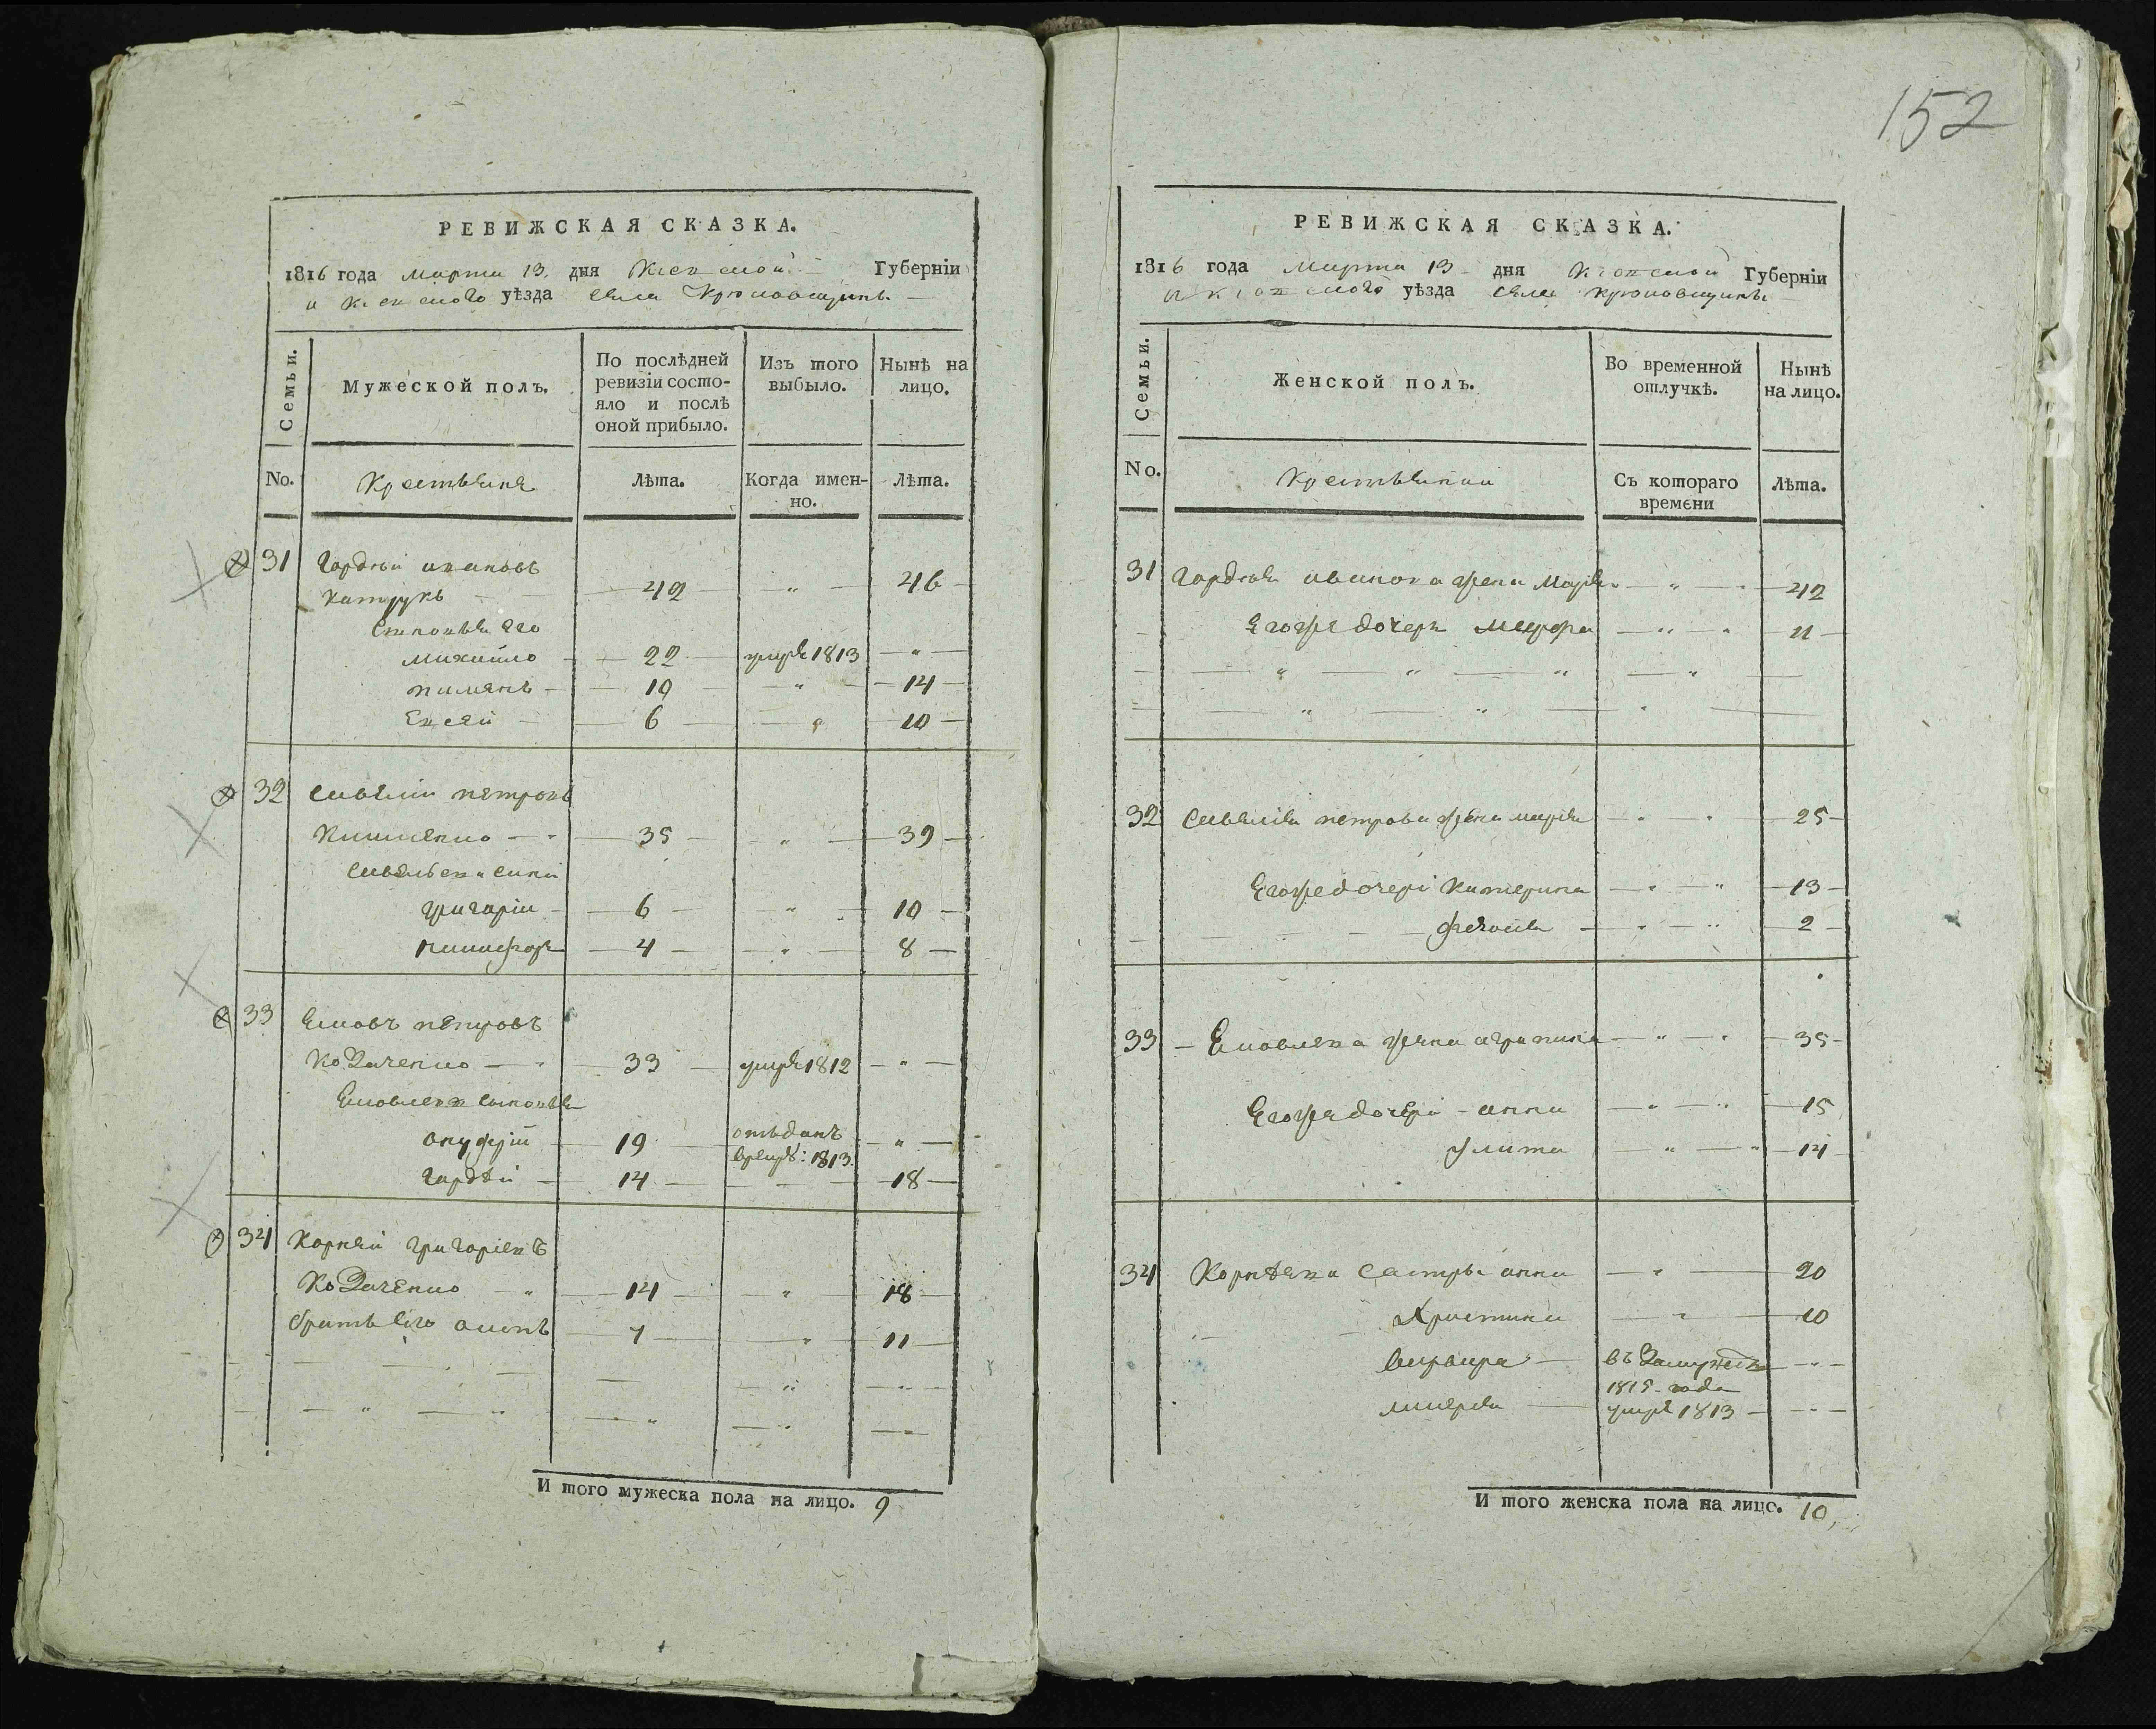 152
РЕВИЖСКАЯ СКАЗКА.
1816 года марта 13 дня Кіевской Губерніи
и Кіевского уѣзда села Крюковщины
Семьи.
Мужеской полъ.
По послѣдней ревизіи состо-
яло и послѣ
оной прибыло.
Изъ того
выбыло.
Нынѣ на
лицо.
No.
Крестьяне
Лѣта.
Когда имен-
но.
Лѣта.
31 Гордѣй ивановъ
42 " 46
Сыновья его
Михайло 22 умре 1813 "
пименъ 10 " 14
Евсей 6 " 10
32 Савелий петровъ
35 " 39
Савельева сыны
григорій 6 " 10
никифоръ 4 " 8
33 Яковъ петровъ
Козаченко 33 умре 1812 "
Яковлева сыновья
онуфрій 19 отъданъ
врекрѣ: 1813. "
Гордѣй 14 18
34 Корней григоріевъ
Козаченко 14 " 18
братъ его осипъ 7 " 11
И того мужеска пола на лицо. 9
РЕВИЖСКАЯ СКАЗКА.
1816 года Марта 13 дня Кіевской Губерніи
и Кіевского уѣзда села Крюковщины
Семьи.
Женской полъ.
Во временной
отлучкѣ.
Нынѣ
на лицо.
No.
Крестьянки
Съ котораго
времени
Лѣта.
31 Гордѣя иванова жена Марія " 42
Егоже дочерь Марфа " 11
32 Савелія петрова жена марія " 25
Егоже дочери Катерина " 13
" 2
33 Яковлева жена агрипина " 35
Егоже дочери анна " 15
улита " 14
34 Корнѣева сестры анна " 20
Христина " 10
варвара въ замужест "
1815 года
марія умре 1813 "
И того женска пола на лицо. 10